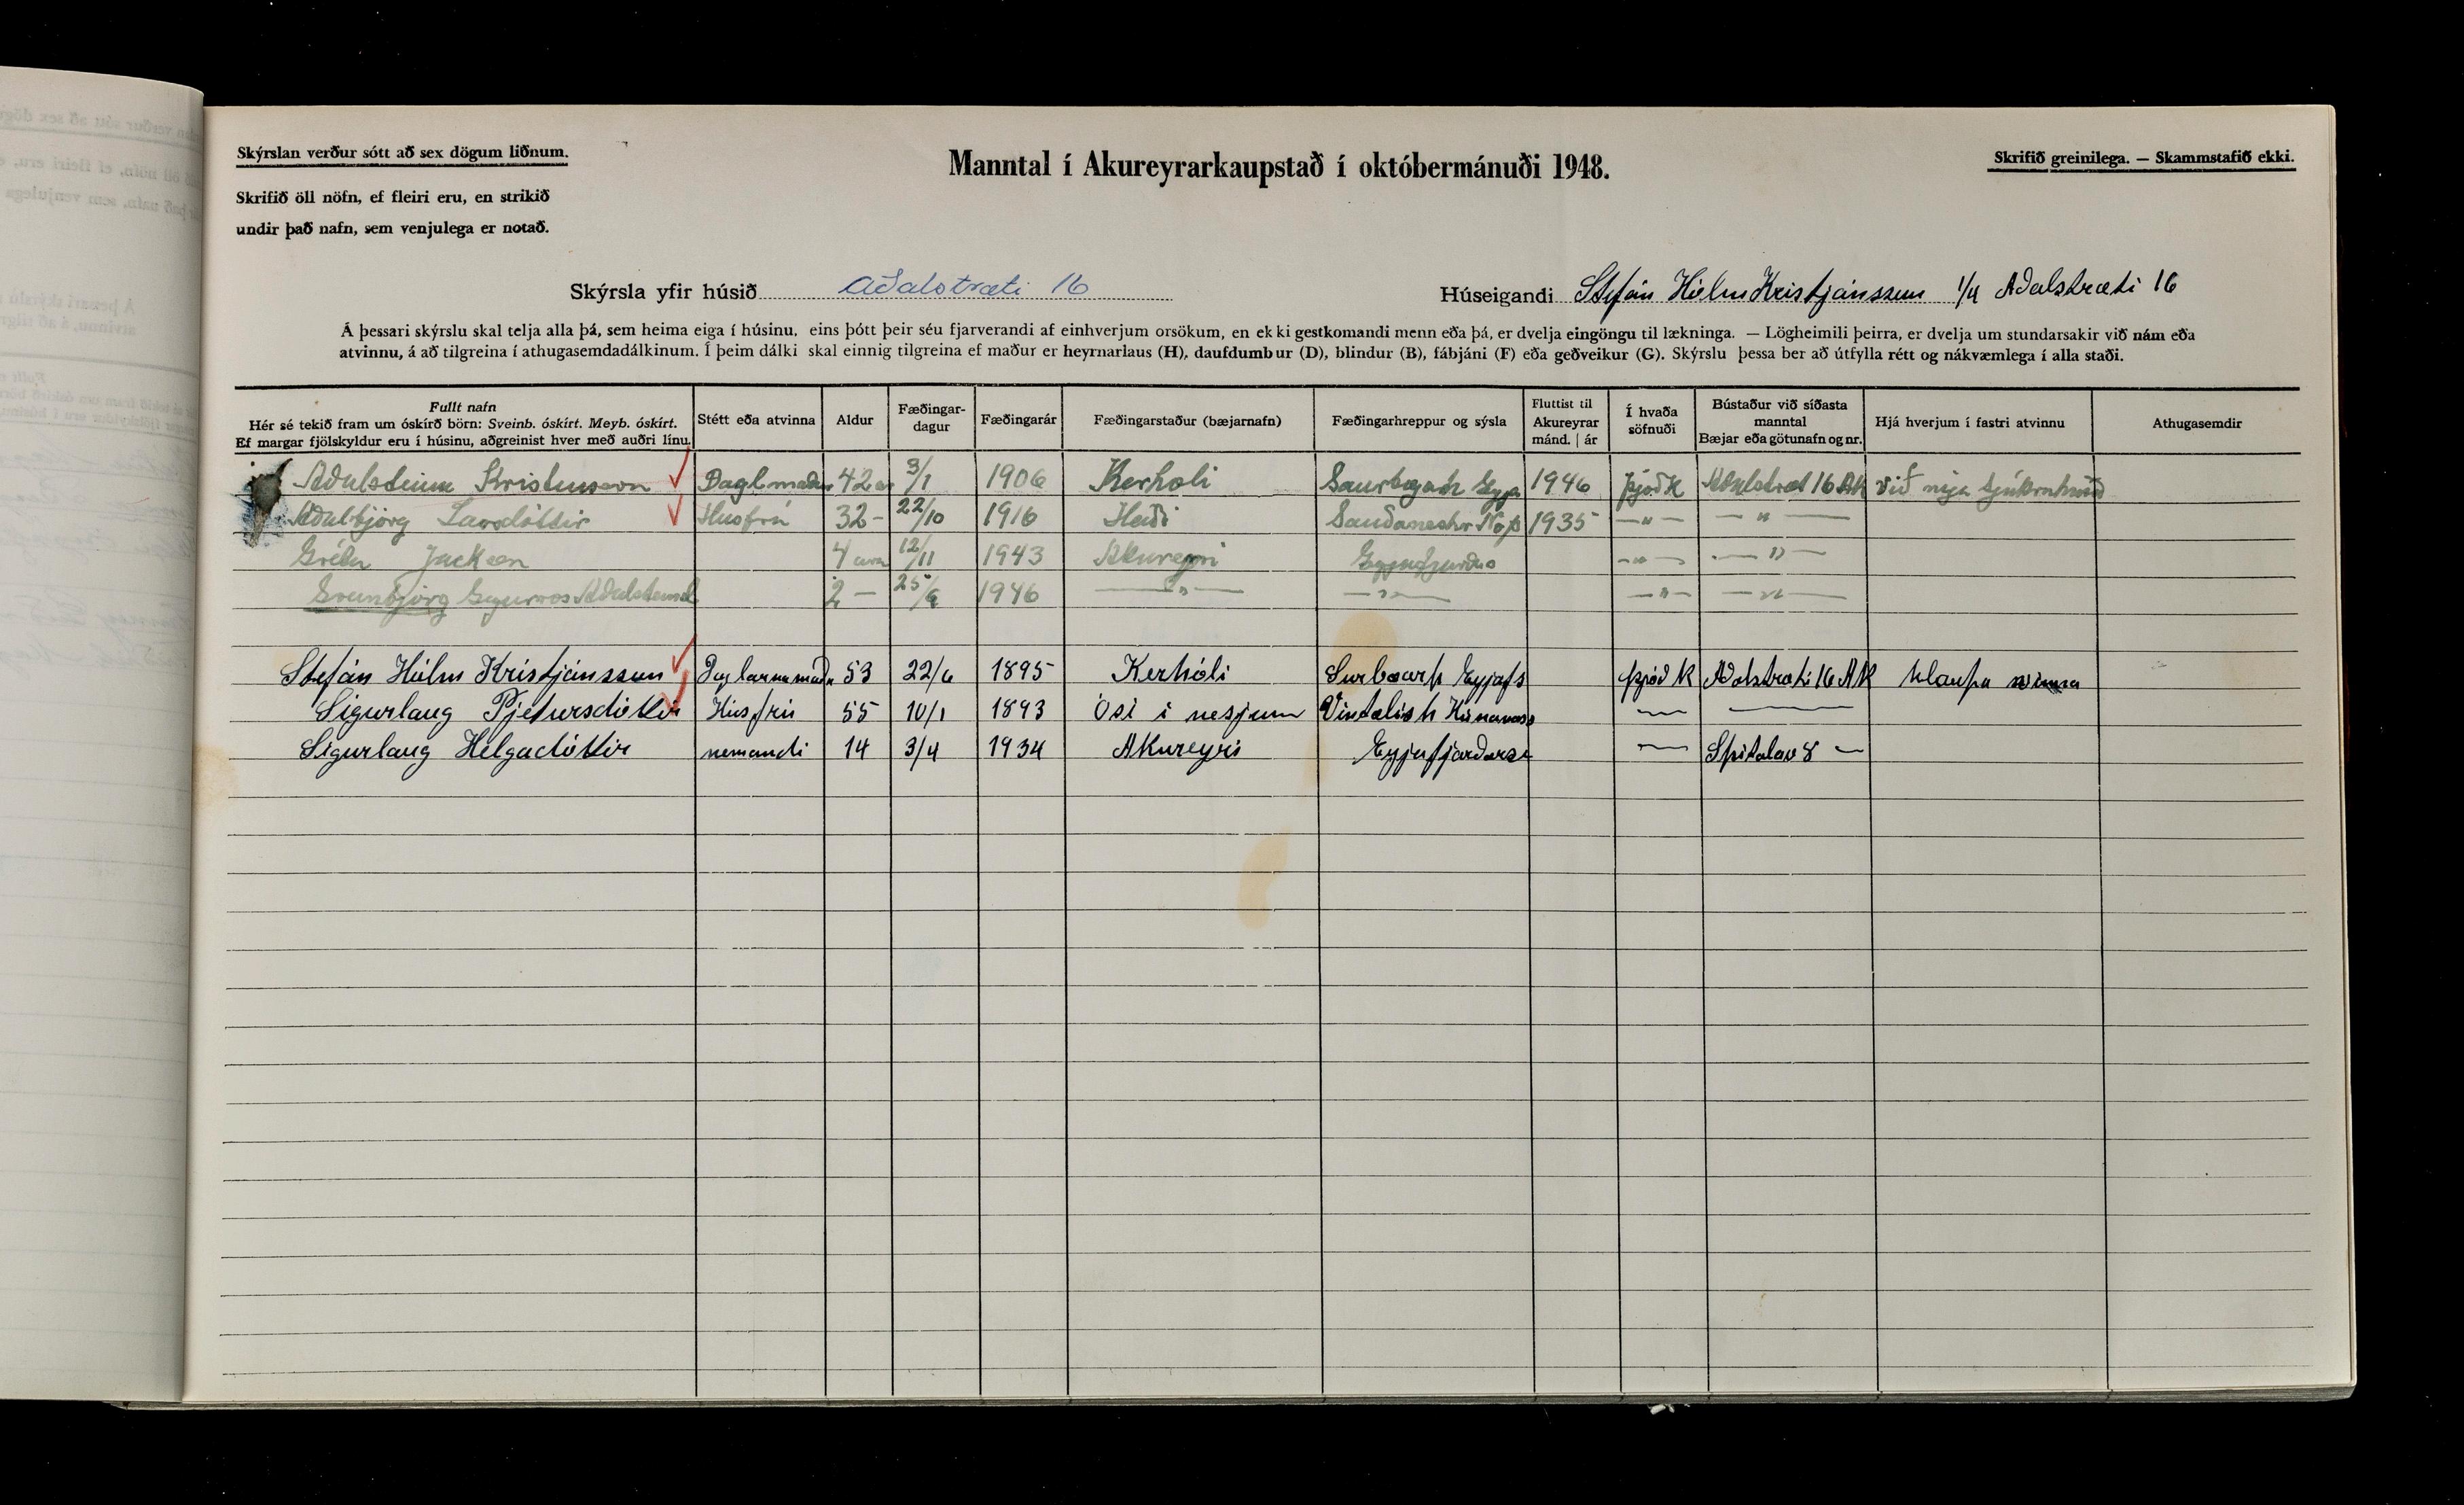 Skýrslan verður sótt að sex dögum liðnum.
Skrifið öll nöfn, ef fleiri eru, en strikið
undir það nafn, sem venjulega er notað.
Manntal í Akureyrarkaupstað í októbermánuði 1948.
Skrifið greinilega. — Skammstafið ekki.
Skýrsla yfir húsið Aðalstræti 16
Húseigandi Stefán Hólm Kristjánsson 1/4 Aðalstræti 16
Á þessari skýrslu skal telja alla þá, sem heima eiga í húsinu, eins þótt þeir séu fjarverandi af einhverjum orsökum, en ekki gestkomandi menn eða þá, er dvelja eingöngu til lækninga. — Lögheimili þeirra, er dvelja um stundarsakir við nám eða
atvinnu, á að tilgreina í athugasemdadálkinum. Í þeim dálki skal einnig tilgreina ef maður er heyrnarlaus (H), daufdumbur (D), blindur (B), fábjáni (F) eða geðveikur (G). Skýrslu þessa ber að útfylla rétt og nákvæmlega í alla staði.
Fullt nafn
Hér sé tekið fram um óskírð börn: Sveinb. óskírt. Meyb. óskírt.
Ef margar fjölskyldur eru í húsinu, aðgreinist hver með auðri línu.
Stétt eða atvinna
Aldur
Fæðingar-
dagur
Fæðingarár
Fæðingarstaður (bæjarnafn)
Fæðingarhreppur og sýsla
Fluttist til
Akureyrar
mánd. | ár
Í hvaða
söfnuði
Bústaður við síðasta
manntal
Bæjar eða götunafn og nr.
Hjá hverjum í fastri atvinnu
Athugasemdir
Aðalsteinn Kristinsson Daglmaður 42 ár 3/1 1906 Kerhóli Saurbæjarh Eyja 1946 þjóðk Aðalstræt 16 Ak við nýja Sjúkrahúsið
Aðalbjörg Húsfrú 32 - 22/10 1916 Heiði Sauðaneshr N.þ 1935 — " — — " —
Gréta Jackson 4 ára 12/11 1943 Akureyri — " — — " —
Sveinbjörg Aðalsteinsd 2 — 25/9 1946 — " — — " — — " — — " —
Stefán Hólm Kristjánsson Daglaunamaðr 53 22/6 1895 Kerhóli Surbæarh Eyjafs þjóð K Aðalstræti 16 AK hlaupa vinna
Sigurlaug Pjetursdóttir Húsfrú 55 10/1 1893 Ósi í nesjum Vindælish Húnavass — —
Sigurlaug Helgadóttir nemandi 14 3/4 1934 Akureyri Eyjafjarðars — Spítalav 8 —